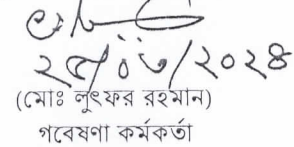 ২৫/০৩/২০২৪
(মোঃ লুৎফর রহমান)
গবেষণা কর্মকর্তা